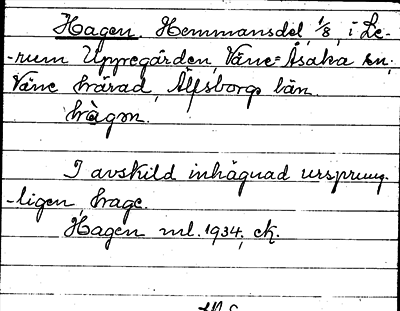 Hagen, Hemmansdel, 1/8, i Le-
-rum Uppegården, Väne-Åsaka sn;
Väne härad, Älfsborgs län.
hàgən.
I avskild inhägnad ursprung-
-ligen hage.
Hagen ml. 1934, ck.